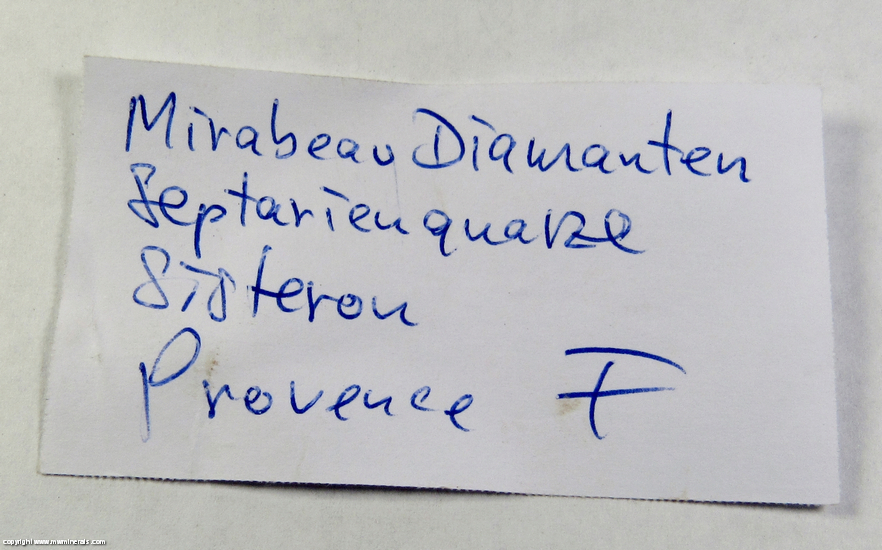 Mirabeau Diamanten
Septarienquarze
Sisteron
Provence F
copyright www.mwminerals.com